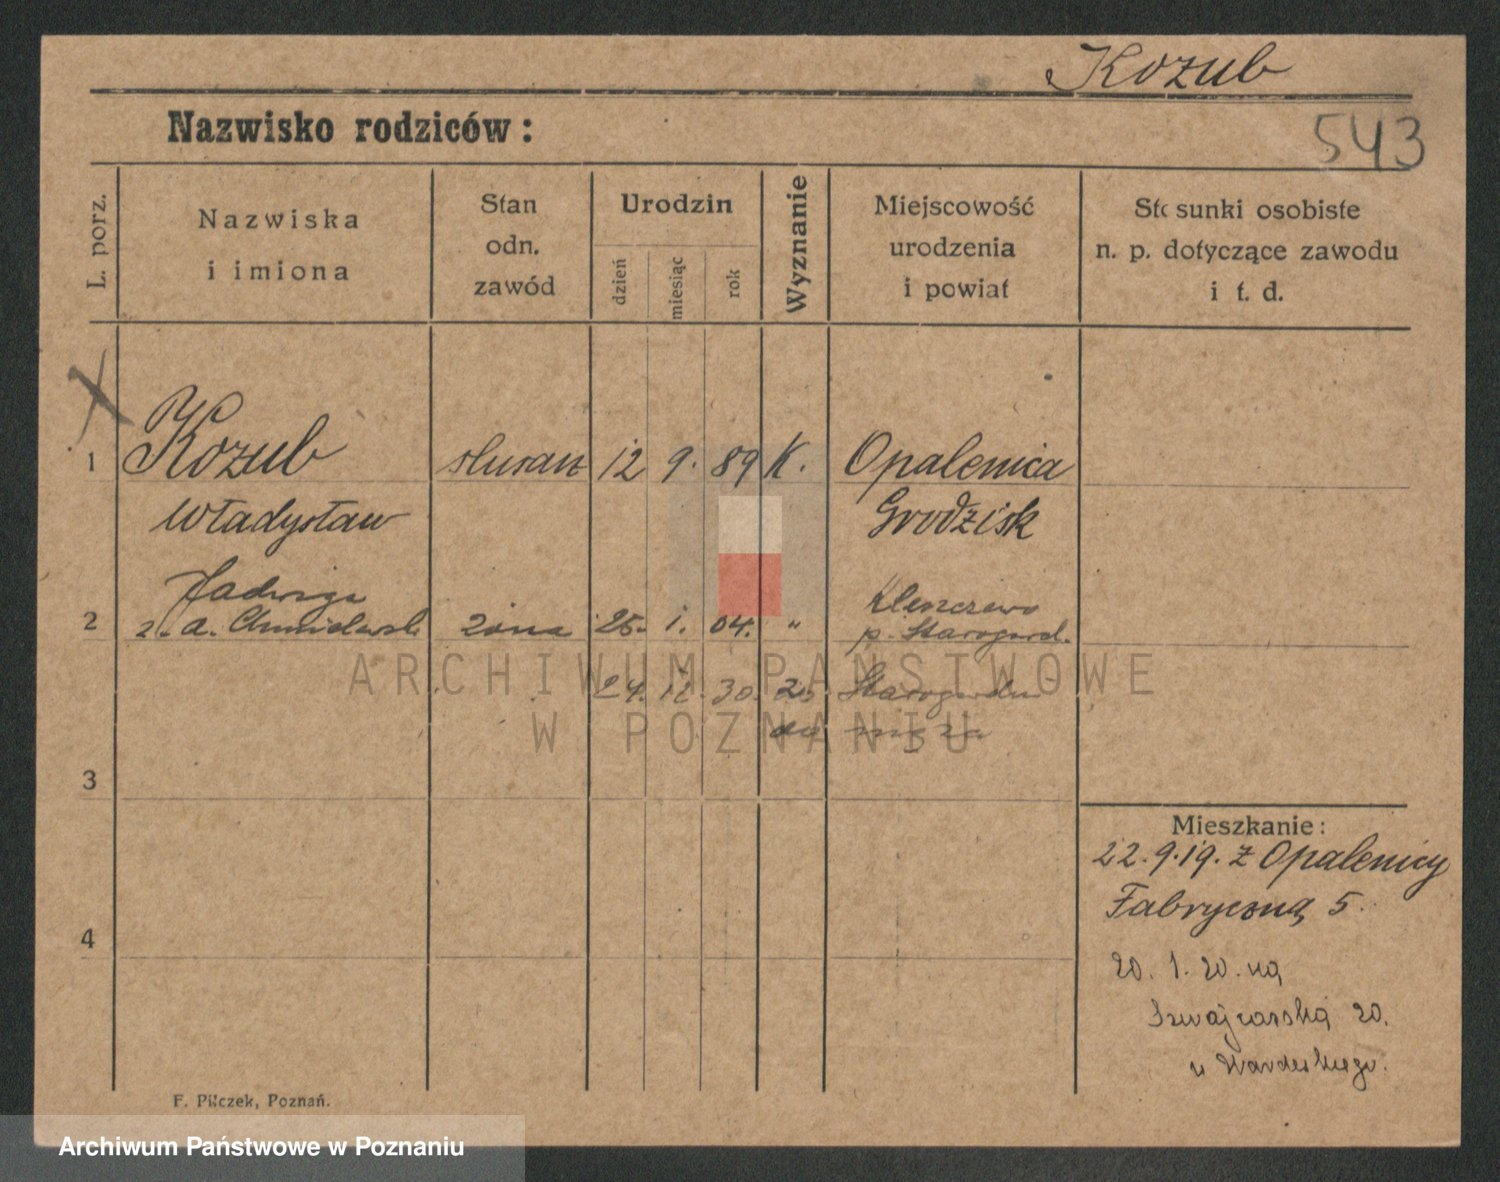 Kozub
Nazwisko rodziców:
543
L. porz.
Nazwiska
i imiona
Stan
odn.
zawód
Urodzin
dzień
miesiąc
rok
Wyznanie
Miejscowość
urodzenia
i powiat
Stosunki osobiste
n. p. dotyczące zawodu
i t. d.
1 Kozub ślusarz 12 9. 89 K. Opalenica
Władysław Grodzisk
Jadwiga Kleszczewo
2 z. d. Chmielewsk żona 25. 1. 04. " p. Starogard.
ARCHIWUM PAŃSTWOWE
24. 12. 30. Starogardu
W POZNANIU
do męża
3
Mieszkanie:
22.9.19. z Opalenicy
Fabryczną 5.
4
20. 1. 20. na
Szwajcarską 20.
u
F. Pilczek, Poznań.
Archiwum Państwowe w Poznaniu